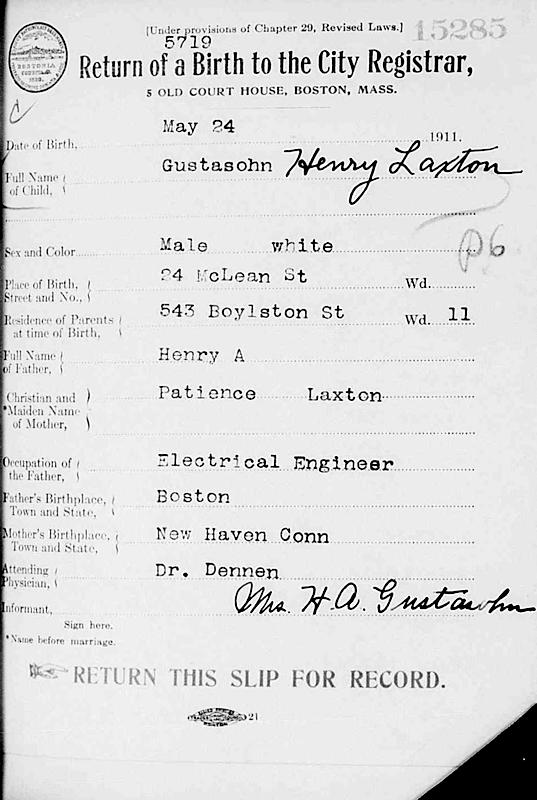 [Under provisions of Chapter 29, Revised Laws.] 15285
5719
Return of a Birth to the City Registrar,
5 OLD COURT HOUSE, BOSTON, MASS.
Date of Birth, May 24 1911.
Full Name of Child, Gustasohn Henry Laxton
Sex and Color Male white
P6
Place of Birth, Street and No., 24 McLean St Wd.
Residence of Parents at time of Birth, 543 Boylston St Wd. 11
Full Name of Father, Henry A
Christian and *Maiden Name of Mother, Patience Laxton
Occupation of the Father, Electrical Engineer
Father's Birthplace, Town and State, Boston
Mother's Birthplace, Town and State, New Haven Conn
Attending Physician, Dr. Dennen
Informant, Mrs. H. A. Gustasohn
Sign here.
*Name before marriage.
RETURN THIS SLIP FOR RECORD.
21